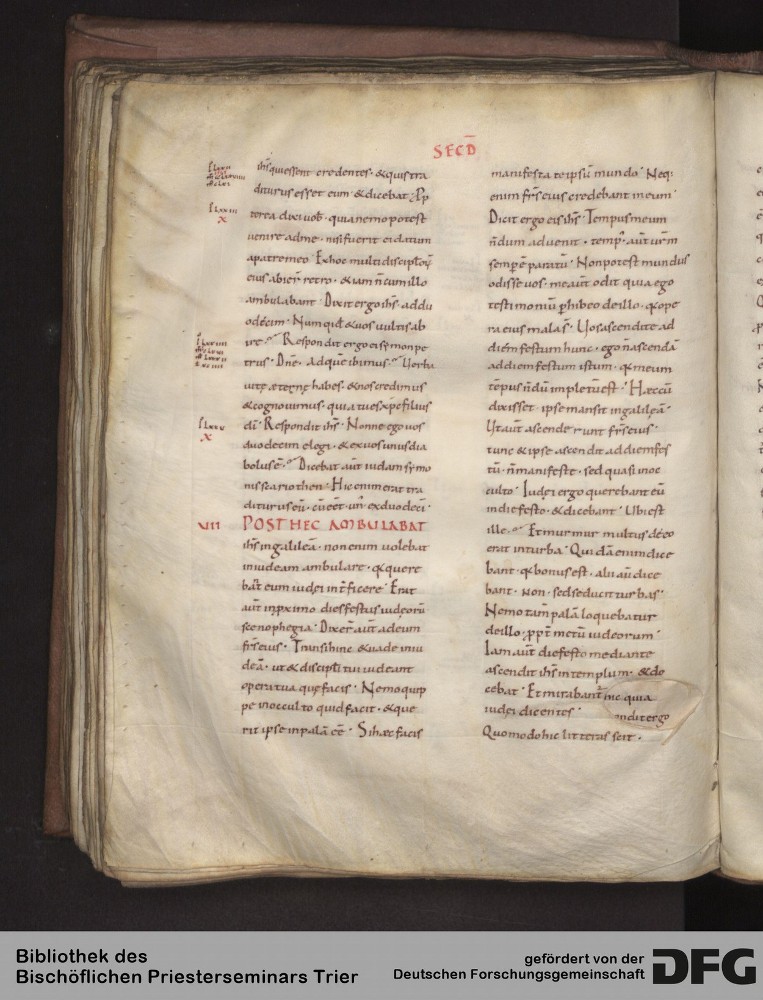 SECD̄
ih̅s qui essent credentes · & quis tra
diturus esset eum · & dicebat · Pp
terea dixi uob̅ · quia nemo potest
uenire ad me · nisi fuerit ei datum
a patre meo · Ex hoc multi discipl̅oꝝ
eius abier̅ retro · & iam n̅ cum illo
ambulabant · Dixit ergo ih̅s · ad du
odecim · Numquid & uos uultis ab
ire · Respondit ergo ei sȳmon pe
trus · Dn̅e · ad quē ibimus · Uerba
uitę ęternę habes · & nos credimus
& cognouimus · quia tu es xp̅c filius
dī · Respondit ih̅s · Nonne ego uos
duodecim elegi · & ex uobis unus dia
bolus ē · Dicebat aut̅ iudam sȳmo
nis scariothen · Hic enim erat tra
diturus eū · cū eēt un' ex duodecī ·
XIII POST HEC AMBULABAT
ih̅s in galileā · non enim uolebat
in iudeam ambulare · quere
bat̅ eum iudei int̅ficere · Erat
aut̅ in p̱ximo dies festus iudeorū
scenophegia · Dixer̅ aut̅ ad eum
fr̅s eius · Transi hinc & uade in iu
deā · ut & discipl̅i tui uideant
opera tua quę facis · Nemo quip
pe in occulto quid facit · & que
rit ipse in palā eē · Si haec facis
manifesta te ipsū mundo · Neq;
enim fr̅s eius credebant in eum ·
Dicit ergo eis ih̅s · Tempus meum
n̄dum aduenit · temp' aut̅ ur̅m
semp̱ ē paratū · Non potest mundus
odisse uos · me aut̅ odit quia ego
testimoniū ꝑhibeo de illo · q̇ ope
ra eius mala s̄ · Uos ascendite ad
diem festum hunc · ego n̄ ascendā
ad diem festum istum · q̇ meum
tēpus n̄dū impletū est · Haec cū
dixisset · ipse mansit in galileā ·
Ut aut̅ ascenderunt fr̅s eius ·
tunc & ipse ascendit ad diem fes
tū · n̄ manifeste · sed quasi in oc
culto · Iudei ergo querebant eū
in die festo · & dicebant · Ubi est
ille · Et murmur multus de eo
erat in turba · Quidā enim dice
bant · q̇ bonus est · alii aū dice
bant · Non · sed seducit turbas ·
Nemo tam̅ palā loquebatur
de illo · ppt̅ metū iudeorum ·
Iam aut̅ die festo mediante
ascendit ih̅s in templum · & do
cebat · Et mirabant̅
iudei dicentes ·
Quomodo hic litteras scit ·
Bibliothek des
Bischöflichen Priesterseminars Trier
gefördert von der
Deutschen Forschungsgemeinschaft
DFG